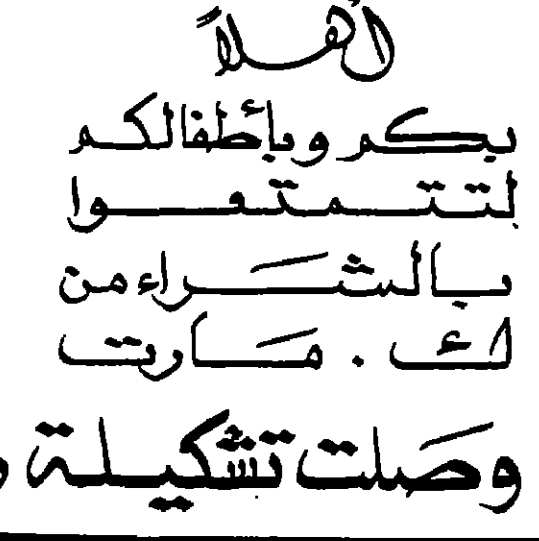 أهلاً
بكم وبأطفالكم
لتتمتعوا
بالشراء من
ك . مارت
وصلت تشكيلة